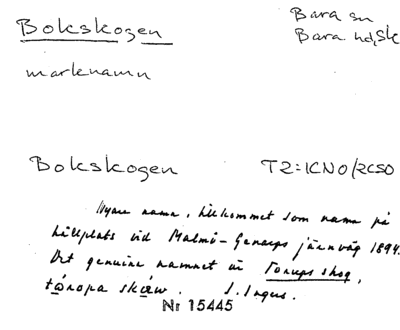 Bokskogen
Bara sn
Bara hd, Sk
marknamn
Bokskogen T2:1CNO/2CSO
Nyare namn, tillkommet som namn på
hållplats vid Malmö-Genarps järnväg 1894.
Det genuina namnet är Torups skog,
skɑ̄w. I. Ingers.
Nr 15445